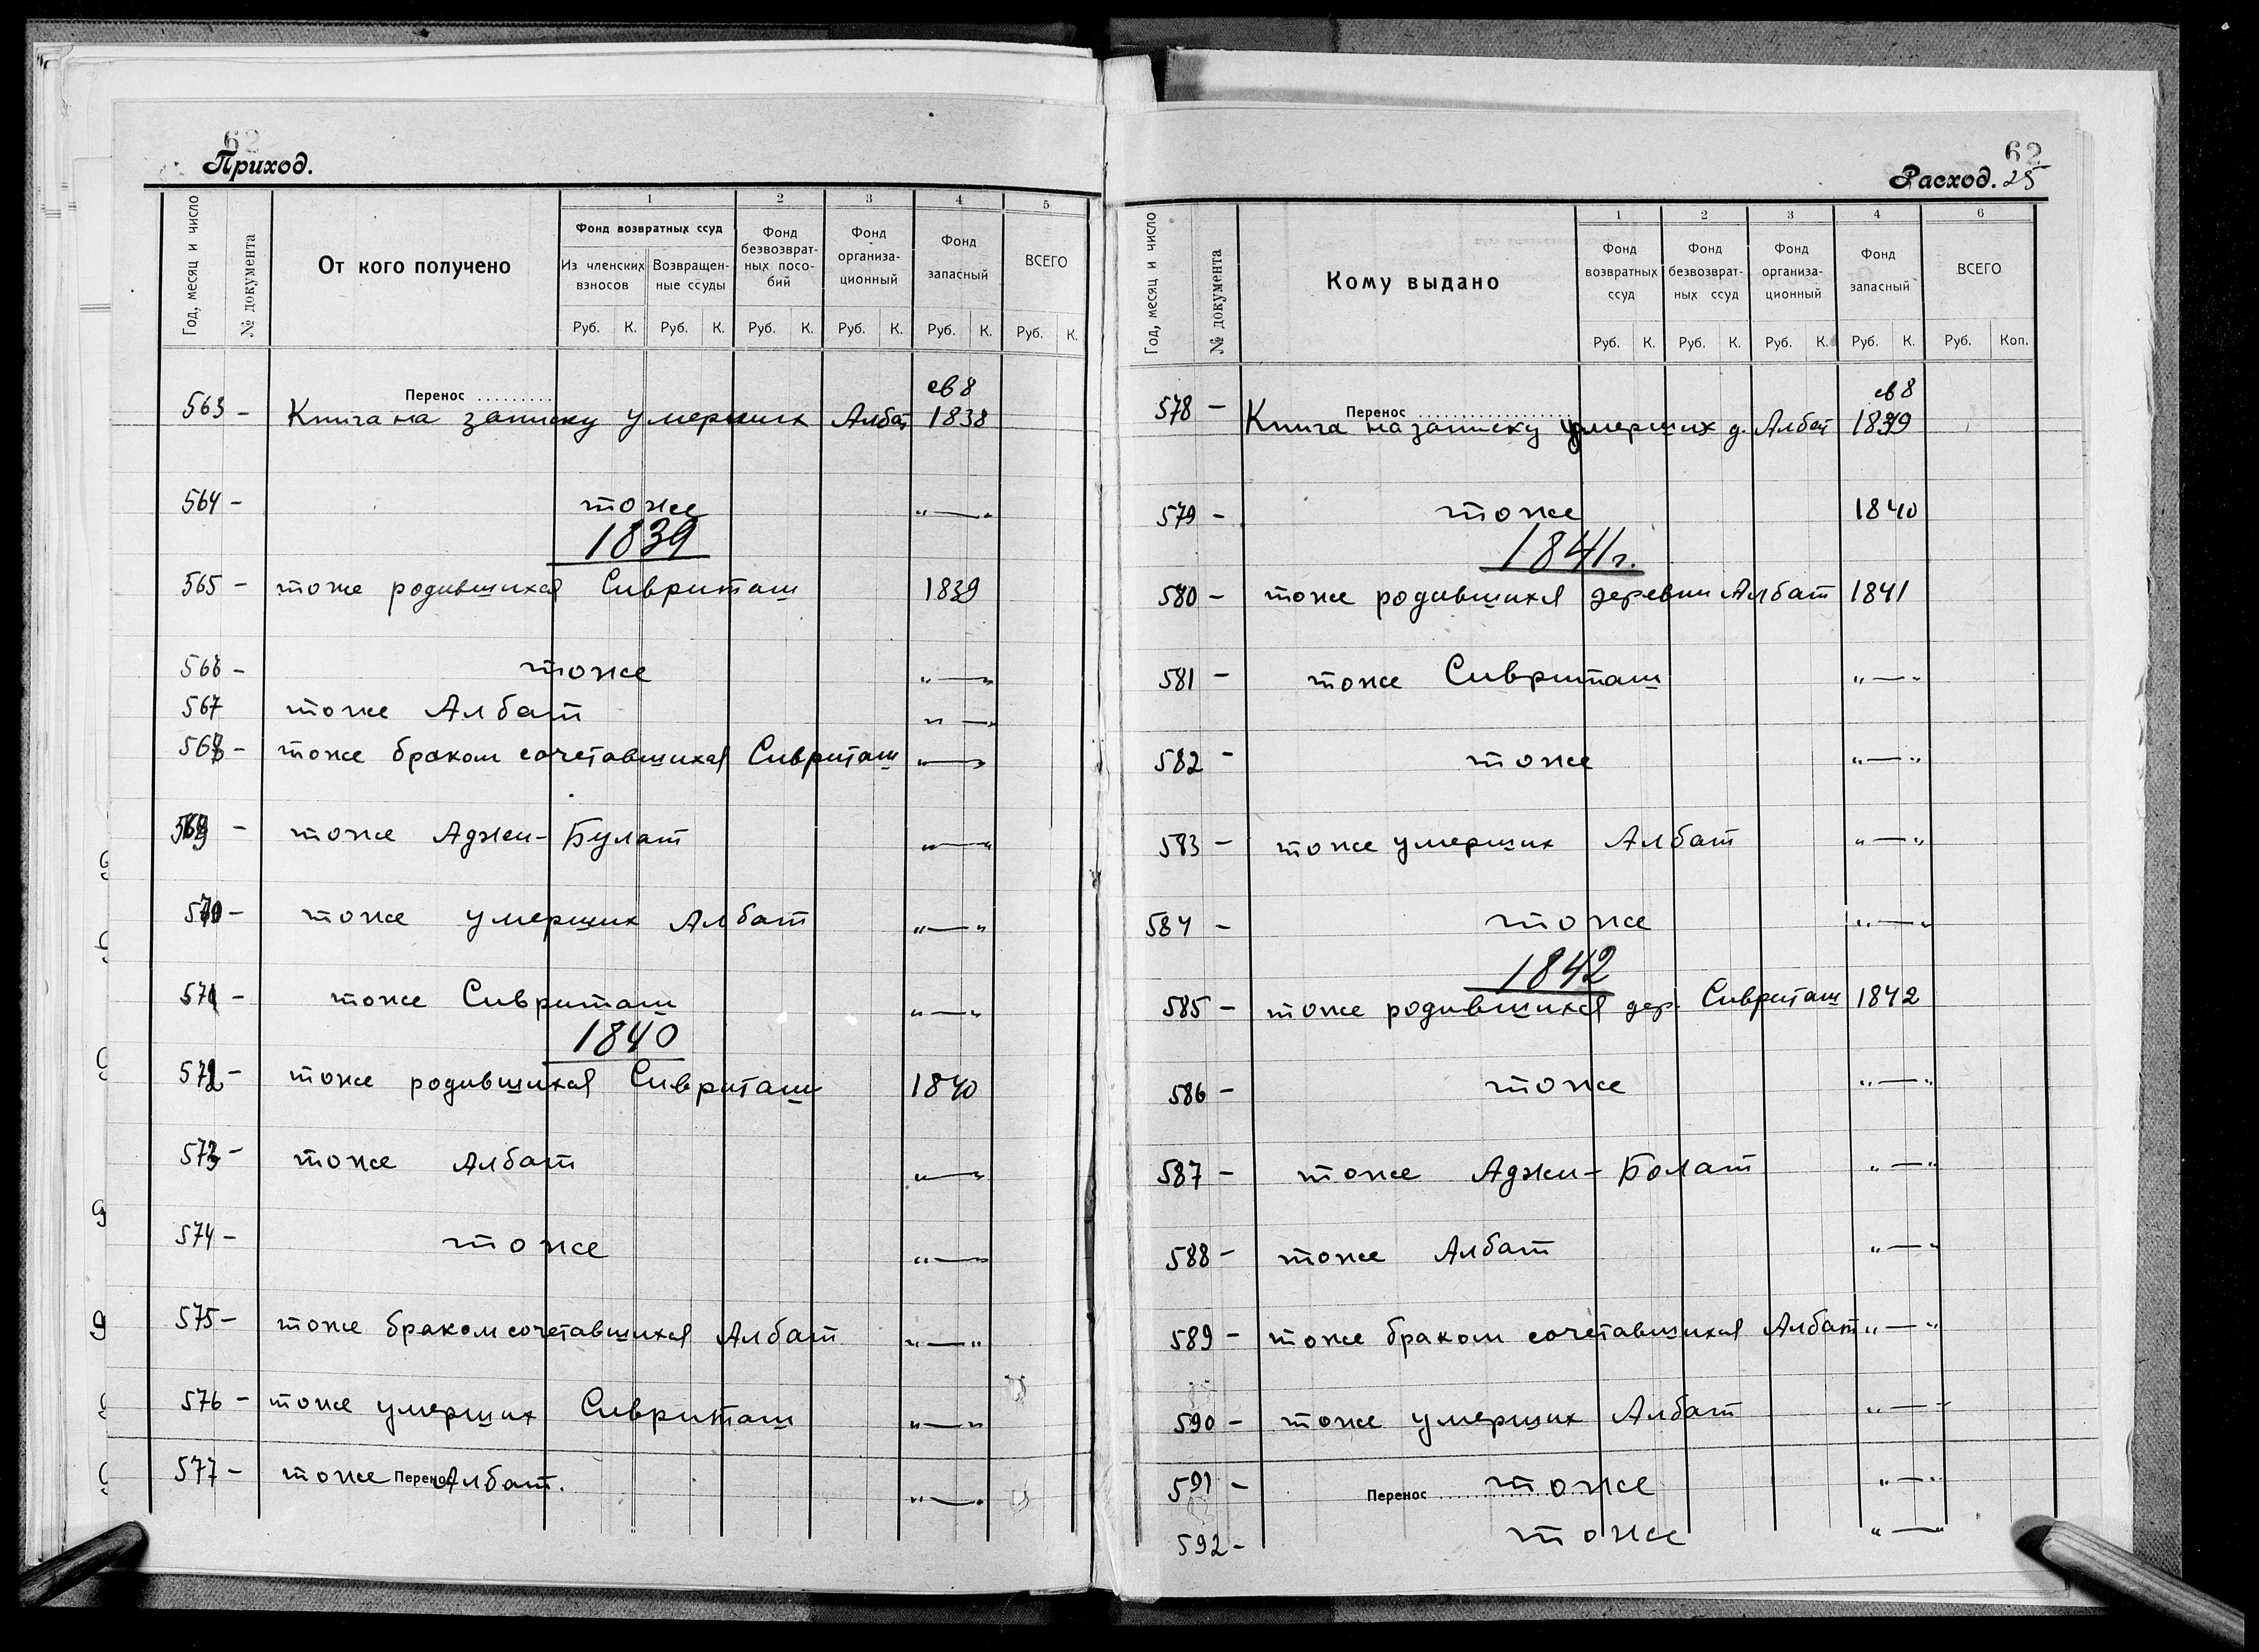 62
Приход.
Год, месяц и число
№ документа
От кого получено
1
Фонд возвратных ссуд
Из членских взносов
Возвращен-
ные ссуды
2
Фонд
безвозврат-
ных посо-
бий
3
Фонд
организа-
ционный
4
Фонд
запасный
5
ВСЕГО
Руб. К. Руб. К. Руб. К. Руб. К. Руб. К. Руб. К.
Перенос
св 8
563 - Книга на записку умерших Албат 1838
564 - тоже "—"
1839
565 - тоже родившихся Сивриташ 1839
566 - тоже "—"
567 тоже Албат "—"
568 - тоже браком сочетавшихся Сивриташ "—"
569 - тоже Аджи-Булат "—"
570 - тоже умерших Албат "—"
571 - тоже Сивриташ "—"
1840
572 - тоже родившихся Сивриташ 1840
573 - тоже Албат "—"
574 - тоже "—"
575 - тоже браком сочетавшихся Албат "—"
576 - тоже умерших Сивриташ "—"
577 - тоже Перенос Албат. "—"
62
Расход. 25
Год, месяц и число
№ документа
Кому выдано
1
Фонд
возвратных
ссуд
2
Фонд
безвозврат-
ных ссуд
3
Фонд
организа-
ционный
4
Фонд
запасный
6
ВСЕГО
Руб. К. Руб. К. Руб. К. Руб. К. Руб. Коп.
Перенос
св 8
578 - Книга на записку умерших д. Албат 1839
579 - тоже 1840
1841 г.
580 - тоже родившихся деревни Албат 1841
581 - тоже Сивриташ "—"
582 - тоже "—"
583 - тоже умерших Албат "—"
584 - тоже "—"
1842
585 - тоже родившихся дер. Сивриташ 1842
586 - тоже "—"
587 - тоже Аджи-Болат "—"
588 - тоже Албат "—"
589 - тоже браком сочетавшихся Албат "—"
590 - тоже умерших Албат "—"
591 - Перенос тоже "—"
592 - тоже "—"